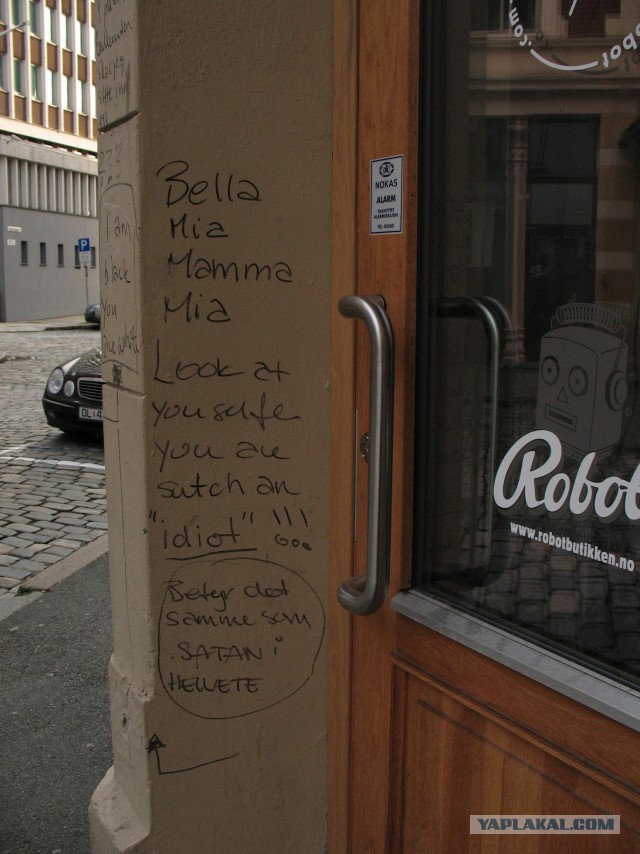 I am
black
you
are white
Bella
Mia
Mamma
Mia
Look at
youselfe
you are
sutch an
"idiot" !!!
Betyr det
samme som
SATAN i
HELVETE
NOKAS
ALARM
robot
.com
Robot
www.robotbutikken.no
P
YAPLAKAL.COM